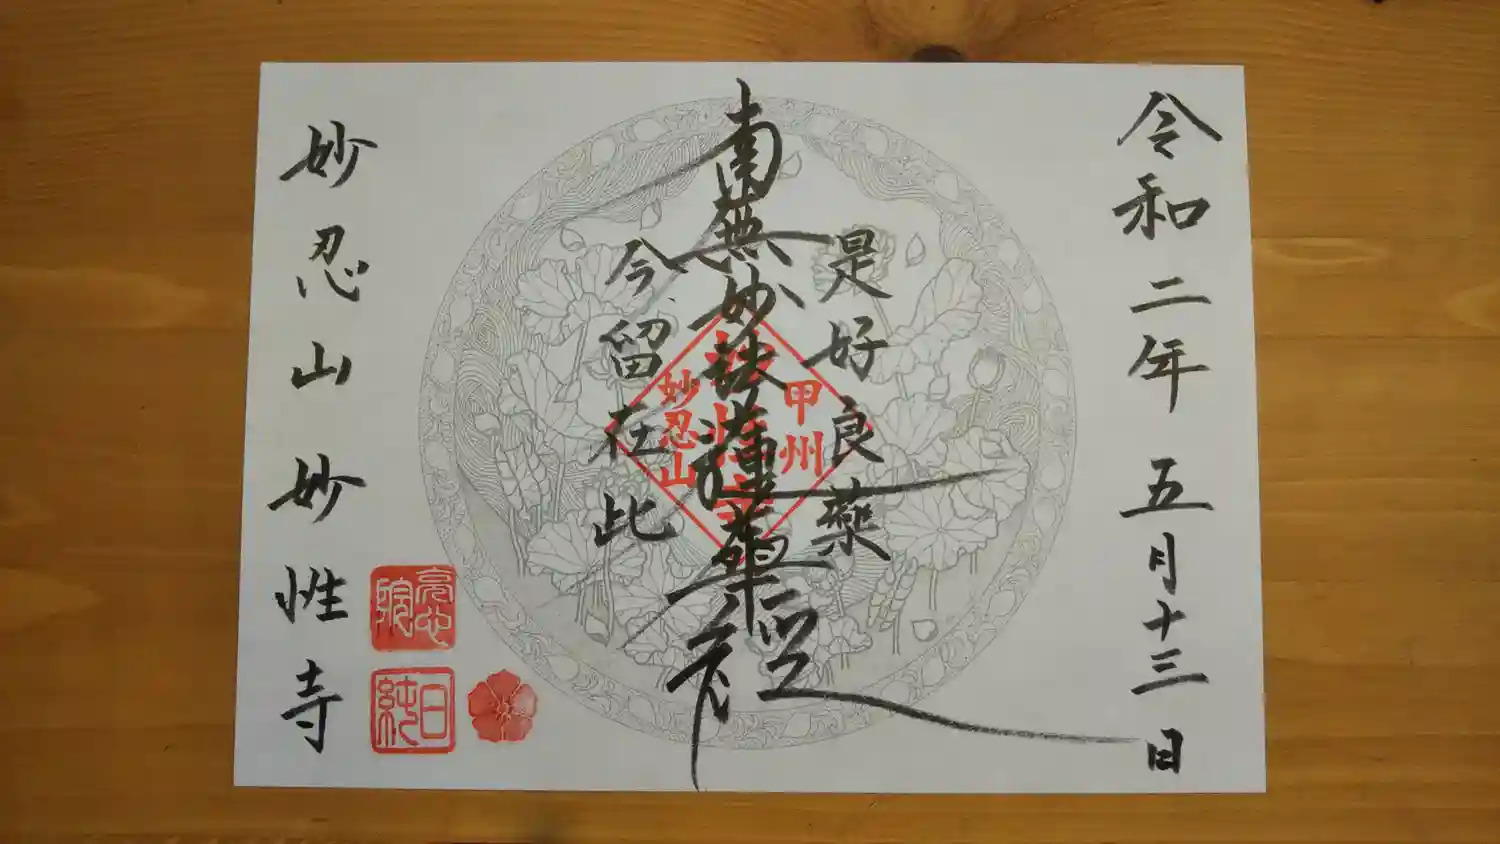 令和二年五月十三日
是好良薬
南無妙法蓮華経
今留在此
甲州
妙性寺
妙忍山
妙忍山妙性寺
亮心院
日純